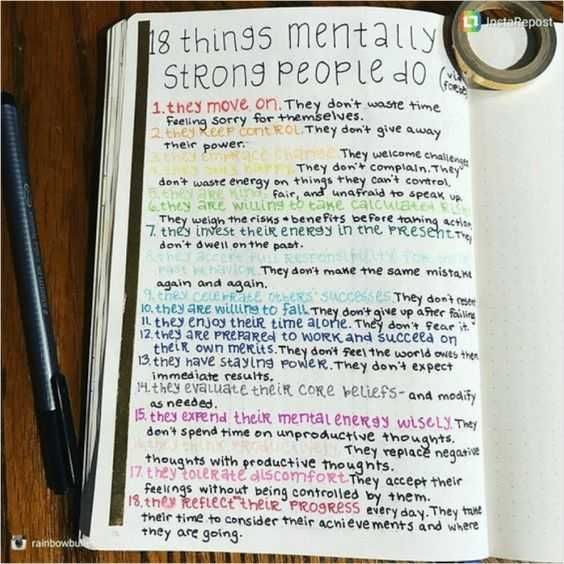 InstaRepost
18 things mentally
strong people do (via
forbes
1. they move on. They don't waste time
feeling sorry for themselves.
2. they keep control. They don't give away
their power.
3. they embrace change. They welcome challenges
4. they stay happy. They don't complain. They
don't waste energy on things they can't control.
5. they are kind, fair, and unafraid to speak up.
6. they are willing to take calculated risks
They weigh the risks + benefits before taking action
7. they invest their energy in the present. They
don't dwell on the past.
8. they accept full responsibility for their
past behavior. They don't make the same mistake
again and again.
9. they celebrate others' successes. They don't resent
10. they are willing to fail. They don't give up after failing
11. they enjoy their time alone. They don't fear it.
12. they are prepared to work and succeed on
their own merits. They don't feel the world owes them
13. they have staying power. They don't expect
immediate results.
14. they evaluate their core beliefs - and modify
as needed.
15. they expend their mental energy wisely. They
don't spend time on unproductive thoughts.
they think productively. They replace negative
thoughts with productive thoughts.
17. they tolerate discomfort. They accept their
feelings without being controlled by them.
18. they reflect their progress every day. They take
their time to consider their achievements and where
they are going.